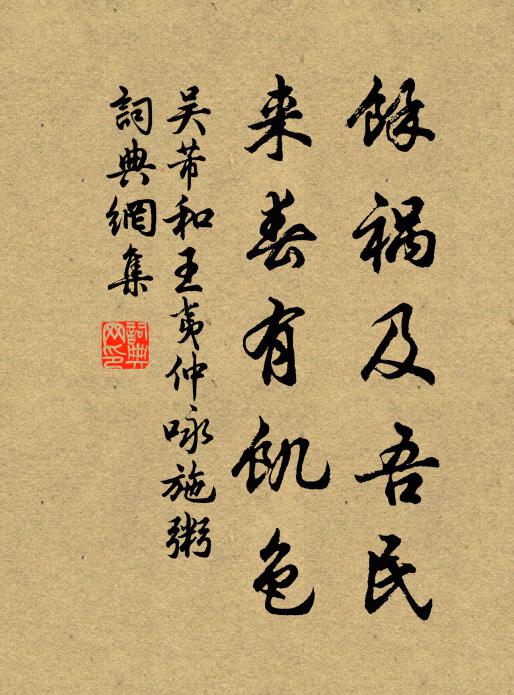 餘禍及吾民
来春有飢色
吴芾和王夷仲咏施粥
詞典網集
詞典网印